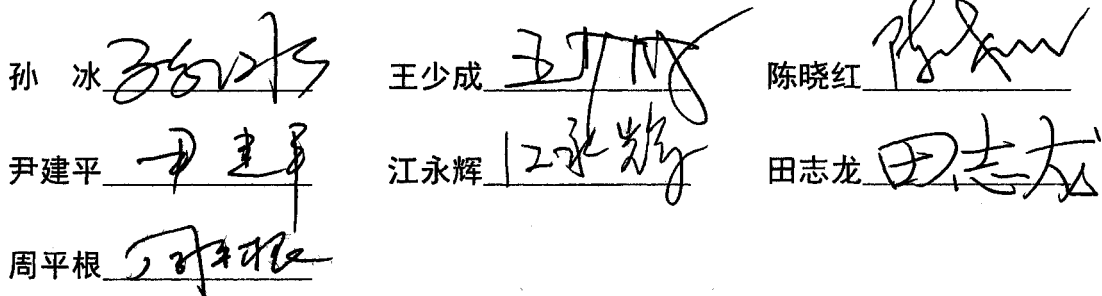 孙 冰 孙冰 王少成 王少成 陈晓红
尹建平 尹建平 江永辉 江永辉 田志龙 田志龙
周平根 周平根